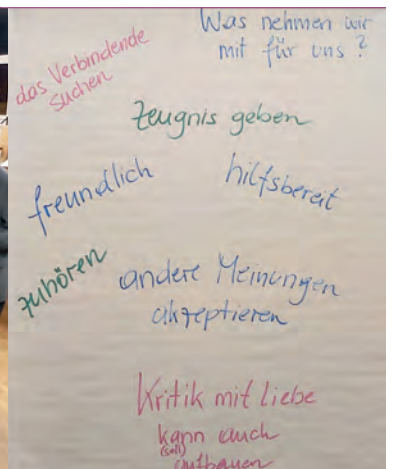 Was nehmen wir
mit für uns?
das Verbindende
suchen
Zeugnis geben
freundlich
hilfsbereit
zuhören
andere Meinungen
akzeptieren
Kritik mit Liebe
kann auch
(soll)
aufbauen